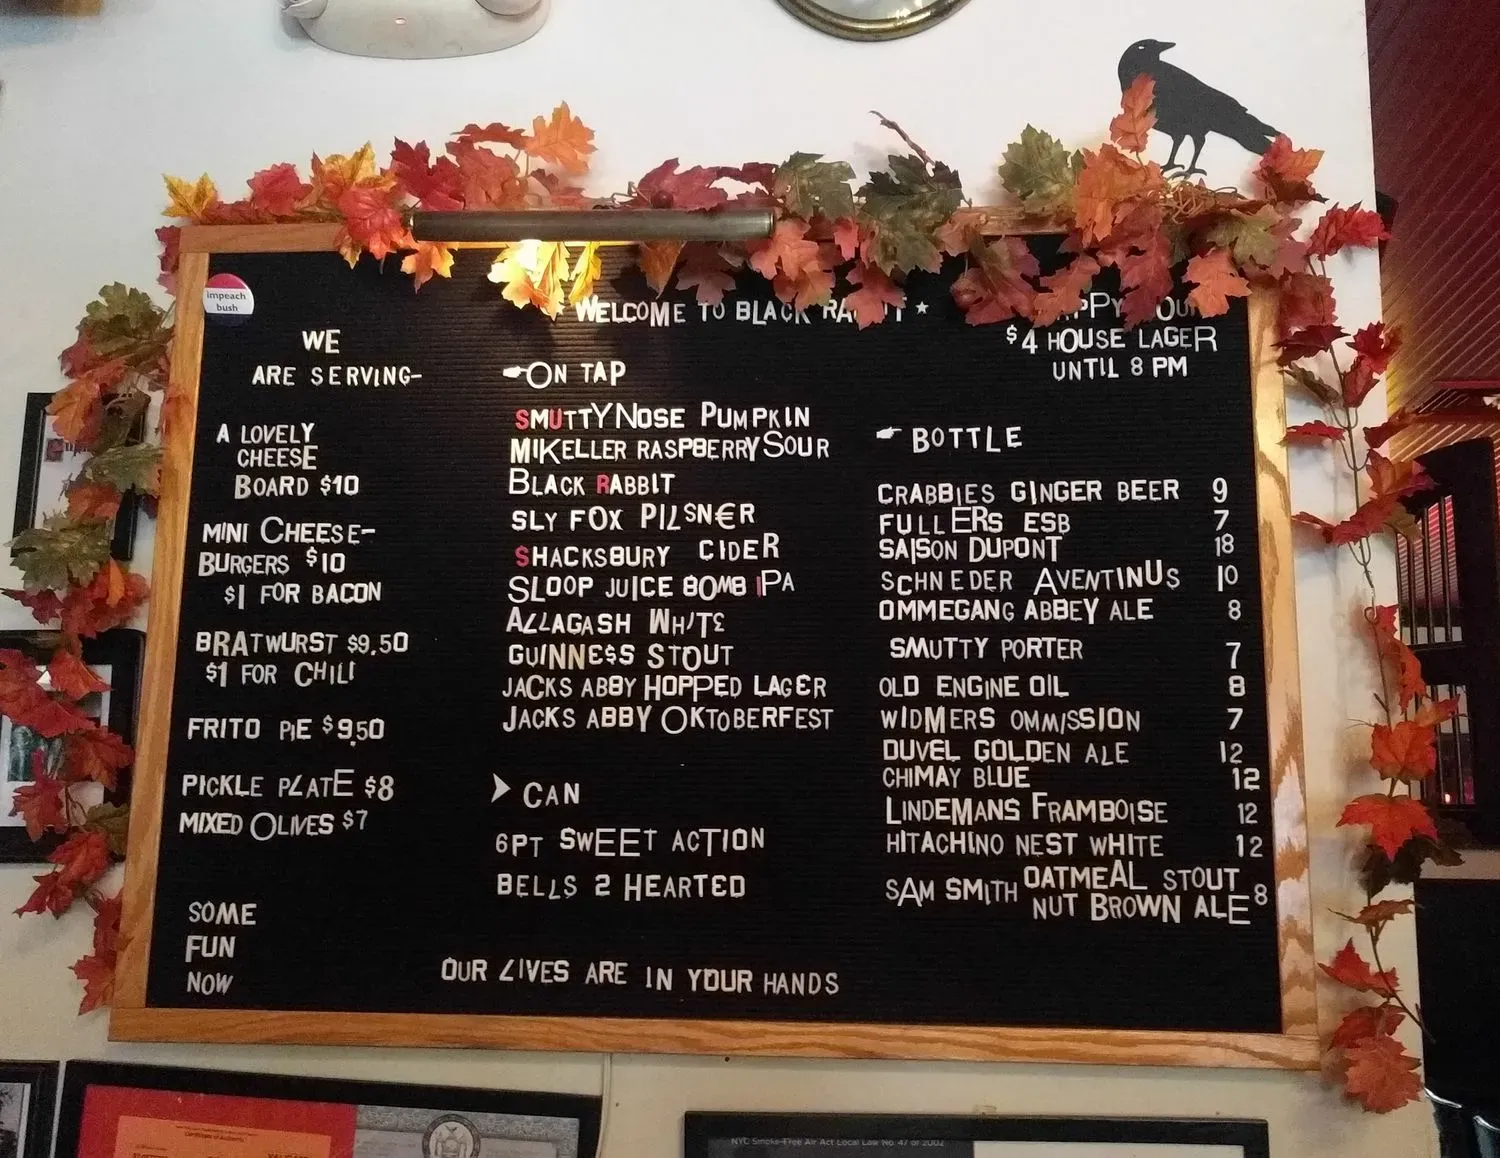 impeach
bush
WELCOME TO BLACK
$4 HOUSE LAGER
UNTIL 8 PM
WE
ARE SERVING-
A LOVELY
CHEESE
BOARD $10
MINI CHEESE-
BURGERS $10
$1 FOR BACON
BRATWURST $9.50
$1 FOR CHILI
FRITO PIE $9.50
PICKLE PLATE $8
MIXED OLIVES $7
SOME
FUN
NOW
ON TAP
SMUTTYNOSE PUMPKIN
MIKELLER RASPBERRY SOUR
BLACK RABBIT
SLY FOX PILSN€R
SHACKSBURY CIDER
SLOOP JUICE BOMB IPA
ALLAGASH WHITE
GUINNE$S STOUT
JACKS ABBY HOPPED LAGER
JACKS ABBY OKTOBERFEST
CAN
6PT SWEET ACTION
BELLS 2 HEARTED
BOTTLE
CRABBIES GINGER BEER 9
FULLERS ESB 7
SAISON DUPONT 18
SCHNEDER AVENTINUS 10
OMMEGANG ABBEY ALE 8
SMUTTY PORTER 7
OLD ENGINE OIL 8
WIDMERS OMMISSION 7
DUVEL GOLDEN ALE 12
CHIMAY BLUE 12
LINDEMANS FRAMBOISE 12
HITACHINO NEST WHITE 12
SAM SMITH OATMEAL STOUT
NUT BROWN ALE 8
OUR LIVES ARE IN YOUR HANDS
NYC Smoke-Free Air Act Local Law No. 47 of 2002